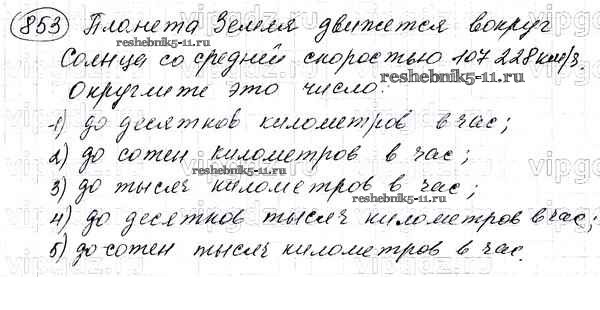 853 Планета Земля движется вокруг
Солнца со средней скоростью 107 228 км/з.
Округлите это число:
1) до десятков километров в час;
2) до сотен километров в час;
3) до тысяч километров в час;
4) до десятков тысяч километров в час;
5) до сотен тысяч километров в час.
reshebnik5-11.ru
reshebnik5-11.ru
reshebnik5-11.ru